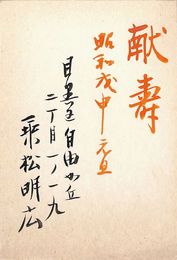 献壽
昭和戊申元旦
目黒区自由が丘
二丁目一ノ一九
乗松明広